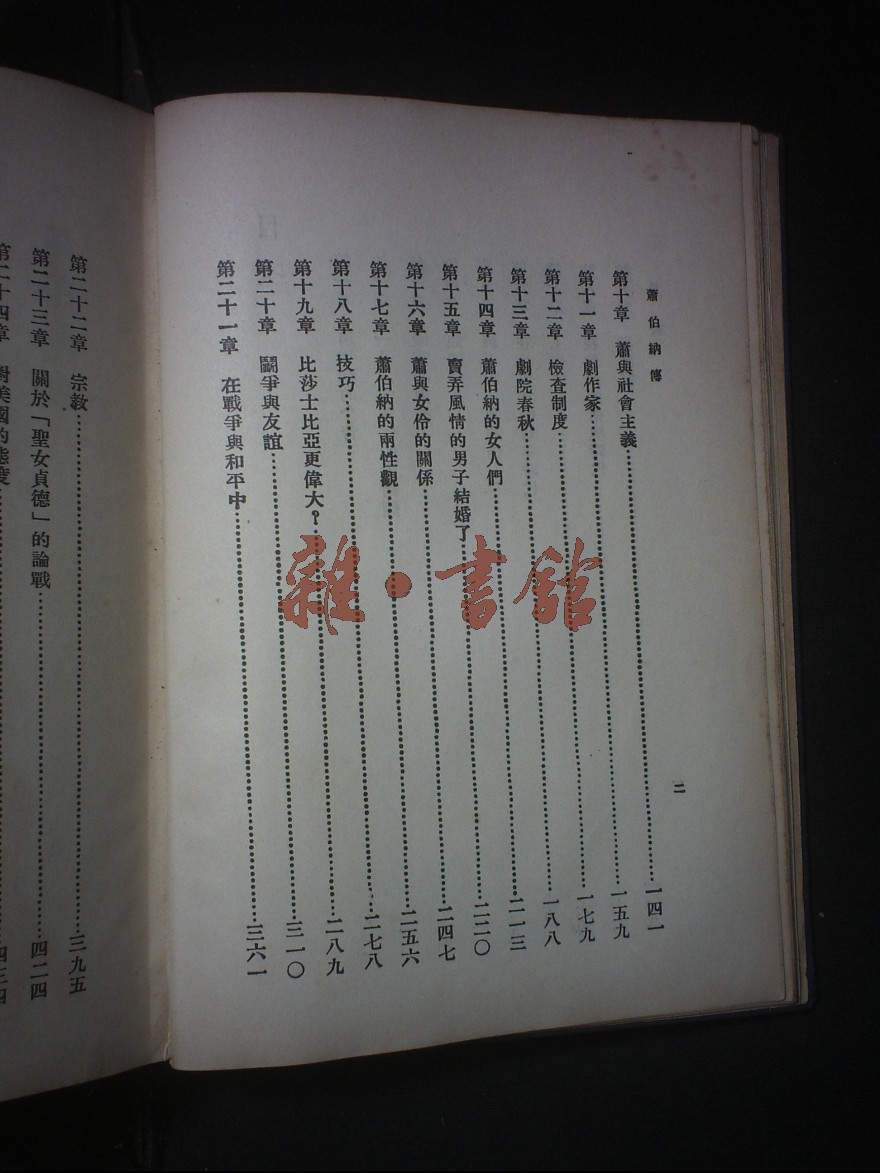 蕭伯納傳
二
第十章 蕭與社會主義……一四一
第十一章 劇作家……一五九
第十二章 檢查制度……一七九
第十三章 劇院春秋……一八八
第十四章 蕭伯納的女人們……二一三
第十五章 賣弄風情的男子結婚了……二二〇
第十六章 蕭與女伶的關係……二四七
第十七章 蕭伯納的兩性觀……二五六
第十八章 技巧……二七八
第十九章 比莎士比亞更偉大？……二八九
第二十章 鬭爭與友誼……三一〇
第二十一章 在戰爭與和平中……三六一
第二十二章 宗教……三九五
第二十三章 關於「聖女貞德」的論戰……四二四
第二十四章 對美國的態度……四三四
雜·書館